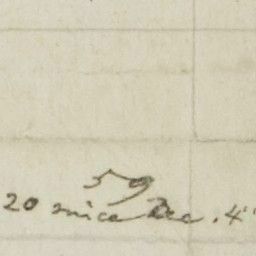 59
20 mice Dec. 4"